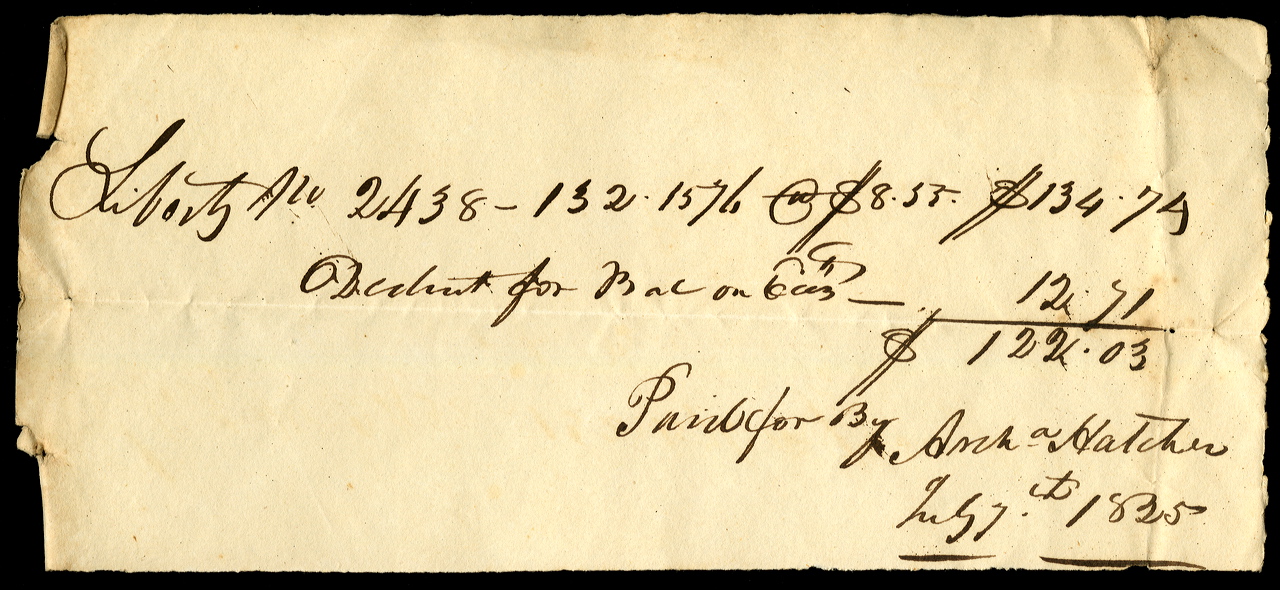 Liberty No 2438 - 132.1576 @ $8.55. $134.74
Deduct for Bac on 12.71
$ 122.03
Paid for By Archa Hatcher
July 7.th 1825